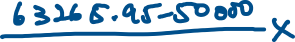 63265.95-50000 x